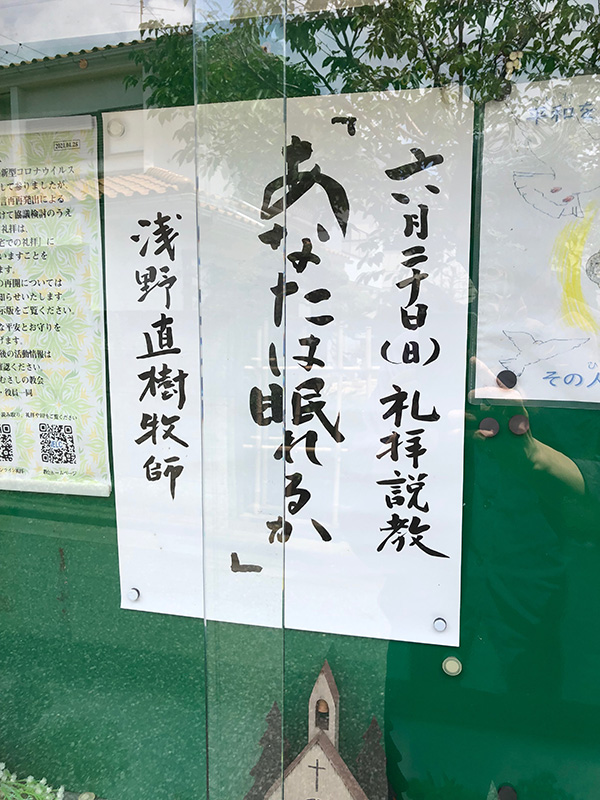 平和を
その人
六月二十日(日)礼拝説教
「あなたは眠れるか」
浅野直樹牧師
2021.04.26
新型コロナウイルス
して参りましたが、
言再再発出による
けて協議検討のうえ
礼拝は、
宅での礼拝」に
いますことを
ます。
の再開については
知らせいたします。
示版をご覧ください。
な平安とお守りを
げます。
後の活動情報は
確認ください。
むさしの教会
・役員一同